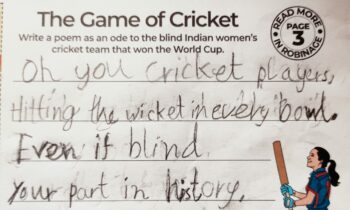 The Game of Cricket
Write a poem as an ode to the blind Indian women's
cricket team that won the World Cup.
READ MORE
PAGE
3
IN ROBINAGE
Oh you cricket players,
Hitting the wicket in every bowl.
Even if blind.
Your part in history,